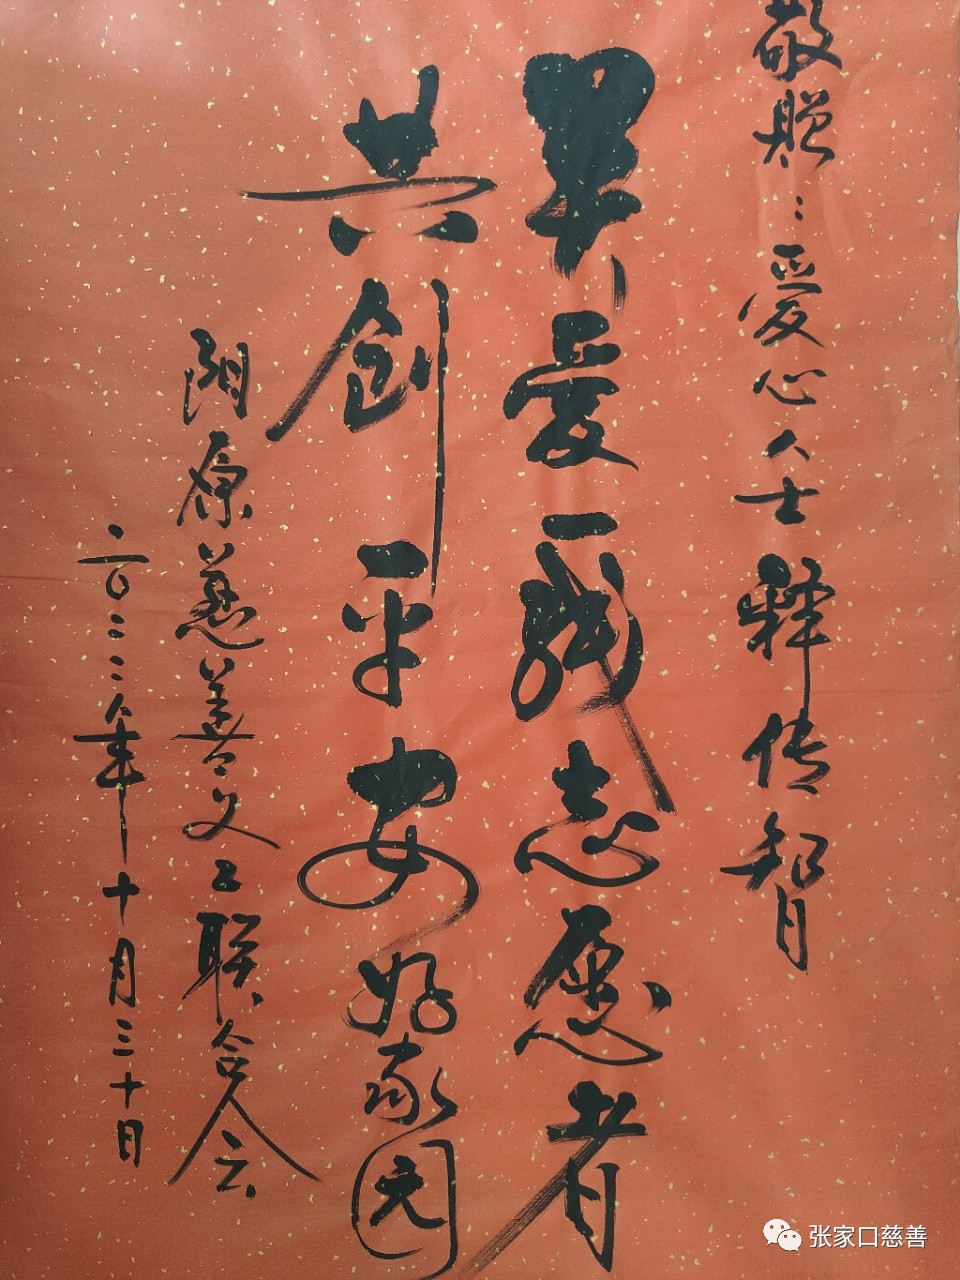 敬赠：爱心人士释传智
爱一线志愿者
共创平安好家园
阳原慈善义工联合会
二〇二二年十月三十日
张家口慈善